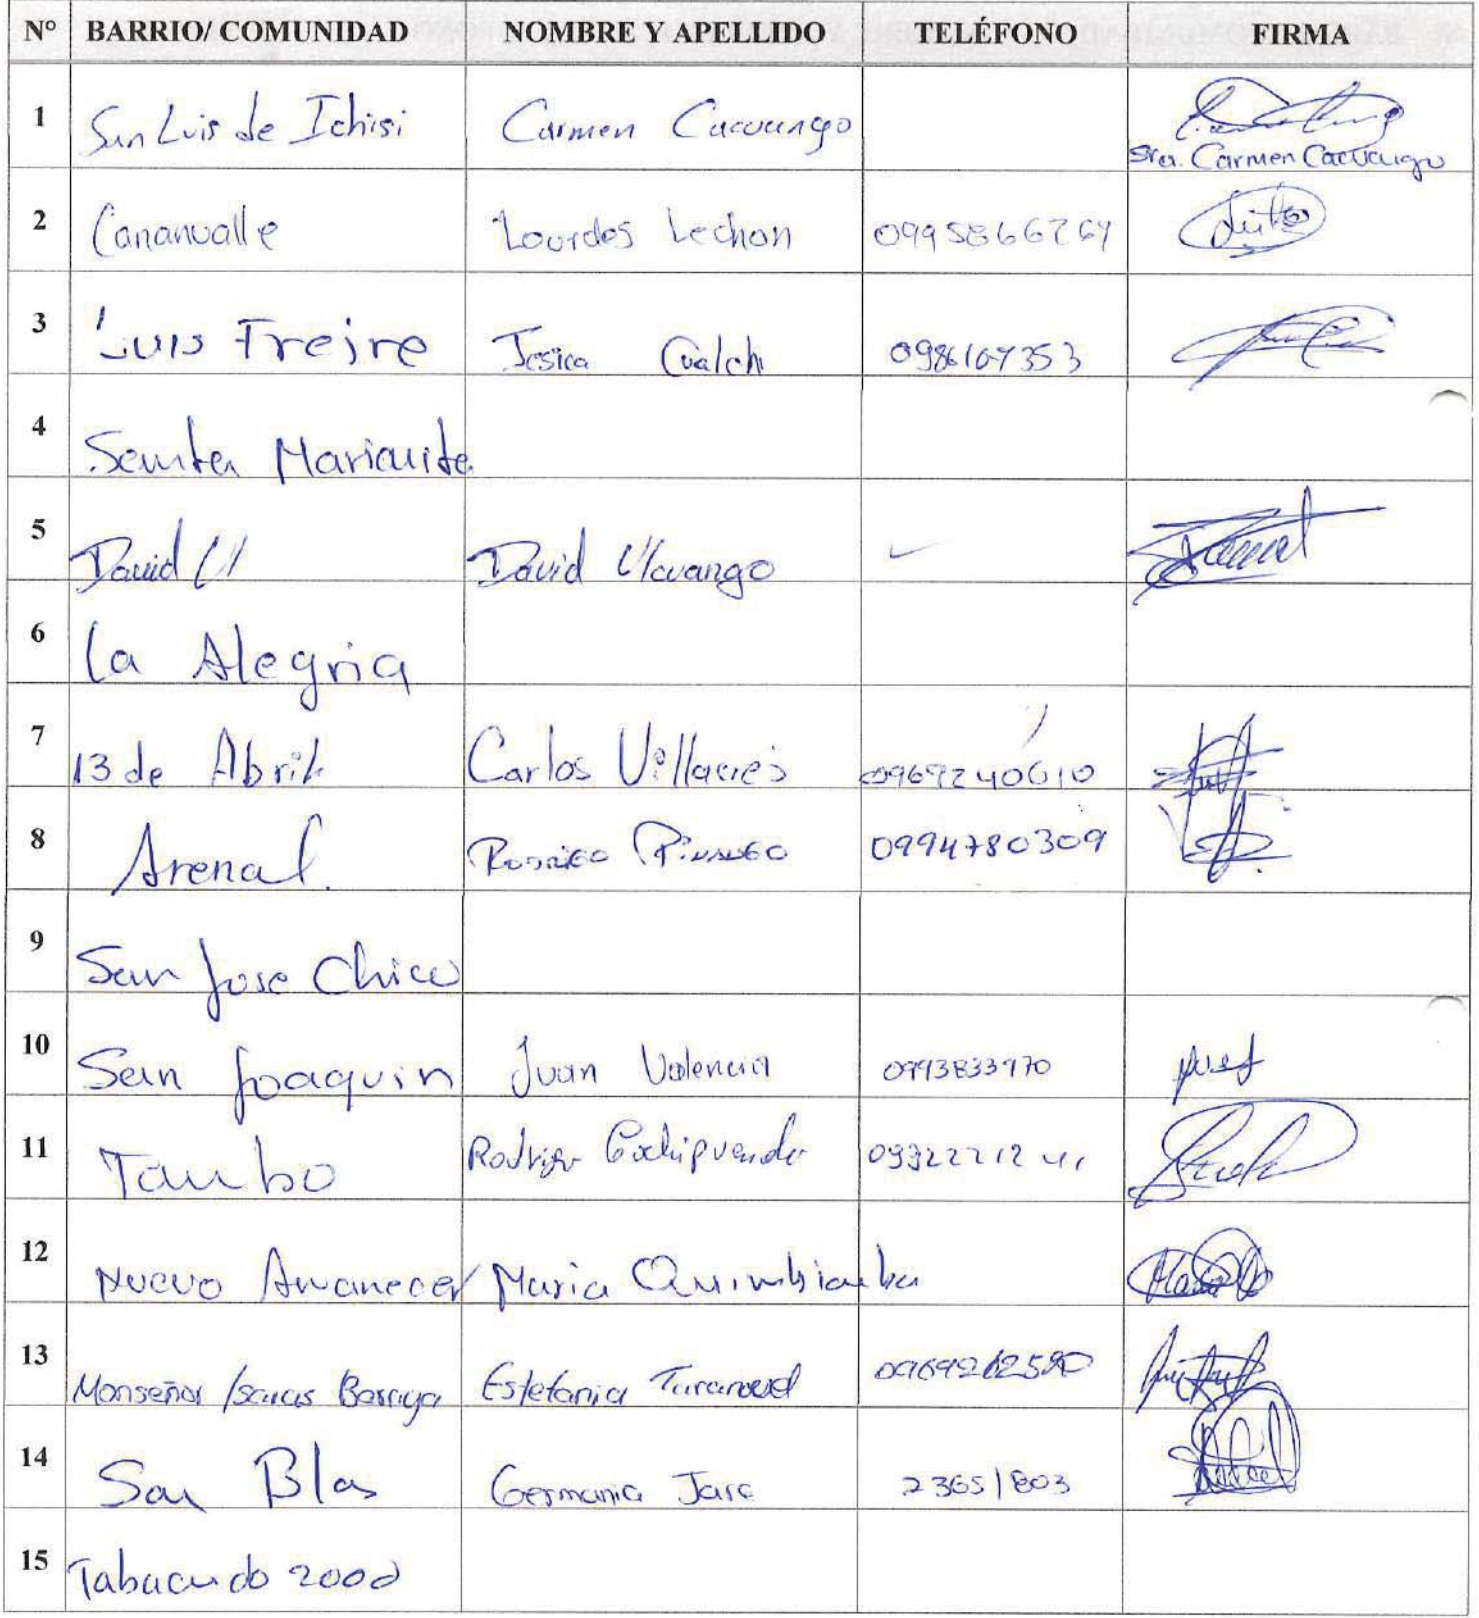 N° BARRIO/ COMUNIDAD NOMBRE Y APELLIDO TELÉFONO FIRMA
1 San Luis de Ichisi Carmen Cacuango
Sra. Carmen Cacuango
2 Cananvalle Lourdes Lechon 0995866264
3 Luis Freire Jesica Cualchi 0986167353
4 Santa Marianita
5 David U David Ulcuango
6 La Alegria
7 13 de Abril Carlos Villacres 0969240610
8 Arenal. Rodrigo 0994780309
9 San Jose Chico
10 San Joaquin Juan Valencia 0993833970
11 Tambo Rodrigo
12 Nuevo Amanecer Maria Quimbiamba
13 Monseñor Isaias Barriga Estefania
14 San Blas Germania Jara 23651803
15 Tabacundo 2000